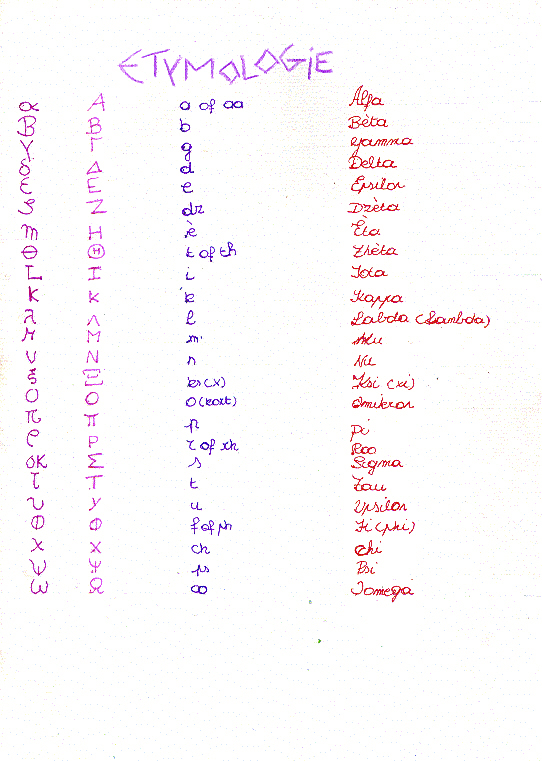 ETYMOLOGIE
α A a of aa Alfa
β B b Bèta
γ Γ g gamma
δ Δ d Delta
ε E e Epsilon
ζ Z dz Dzèta
η H è Èta
θ Θ t of th Thèta
ι I i Iota
κ K k Kappa
λ Λ l Labda (Lambda)
μ M m Mu
ν N n Nu
ξ Ξ ks (x) Ksi (xi)
ο O o (kort) omikron
π Π p pi
ρ P r of rh Roo
σς Σ s Sigma
τ T t Tau
υ Y u Ypsilon
φ Φ f of ph Fi (phi)
χ X ch chi
ψ Ψ ps Psi
ω Ω oo Oomega